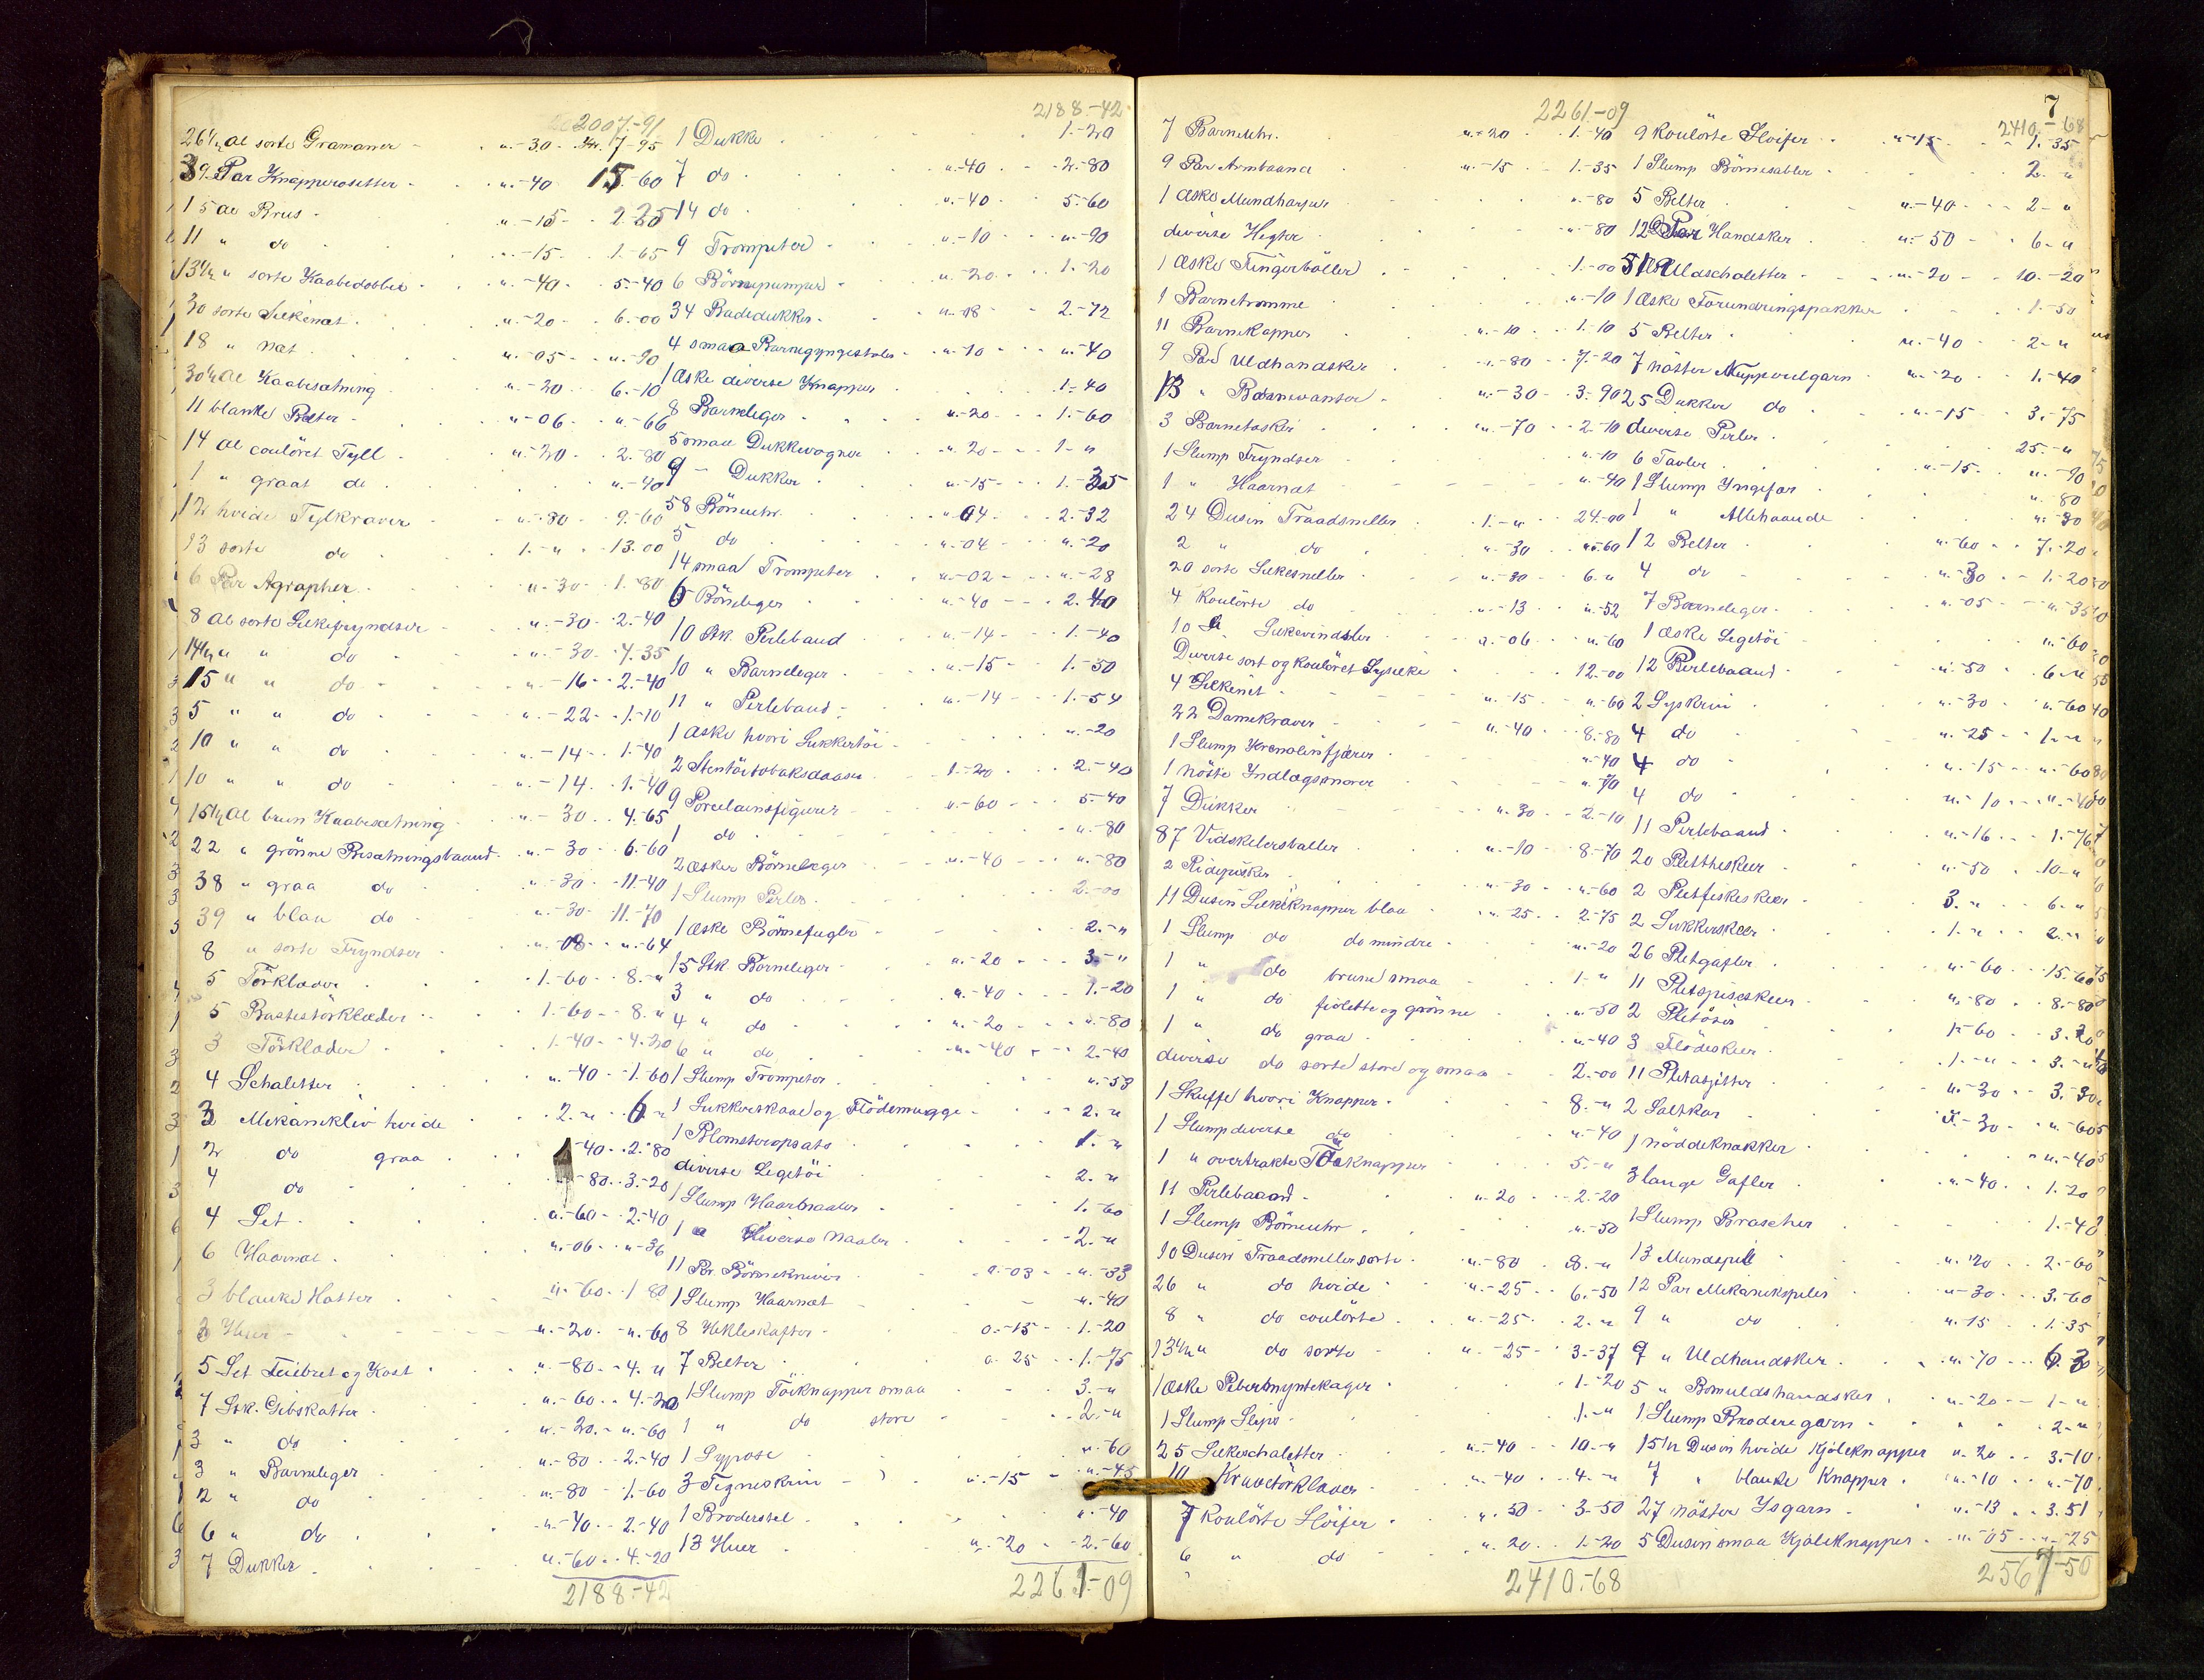 2007.-91
26½ Al sorte Gramaner - " u.-30. Kr. 7-95
39 Par Knapperosetter - u.-40 15.-60
15 Al Brus - u.-15 - 2-25
11 " do - "-15 - 1.-65
13½ " sorte Kaabedobber - u.-40. 5.-40
30 sorte Silkenæt . u.-20 - 6.-00
18 " næt . u.-05 - u.-90
30½ Al Kaabesætning . u.-20 - 6.-10
11 blanke Belter - u-06 - u.-66
14 Al coulöret Tyll - u.-20 - 2.-80
1 " graat do . u.-40
12 hvide Tylkraver - u.-80 - 9.-60
13 sorte do - 1.-u - 13.00
6 Par Agrapher . u.-30 - 1.-80
8 Al sorte Silkefryndser - u.-30 - 2.-40
14½ " " do - u.-30. 4.35
15 " " do - u.-16 - 2.-40
5 " " do - u.-22 - 1.-10
10 " " do - u.-14 - 1.-40
10 " " do - u.-14. 1.-40
15½ Al brun Kaabesætning - u.-30 . 4.-65
22 " grönne Besætningsbaand . u.-30 - 6.-60
38 " graa do - u.-30 - 11.-40
39 " blaa do - u.-30 - 11.-70
8 " sorte Fryndser - u.-08 - u.-64
5 Törklæder . 1.-60 - 8.-u
5 Bastestörklæder . 1.-60 - 8.u
3 Törklæder - 1.-40 - 4.20
4 Schaletter . u.-40 - 1.-60
3 Mikanikliv hvide . 2.-u - 6-u
2 do graa . 1-40 . 2.-80
4 do . -80 . 3.-20
4 Set . u.-60 - 2.-40
6 Haarnæt . u.-06 - u-36
3 blanke Hatter . u.-60 . 1 80
3 Huer - u.-20. - u.-60
5 Set Feiebret og Kost . u.-80 . - 4.-u
7 Stk. Gibskatter . u.-60 - 4.-20
3 " do . u.-20. - u.-60
3 " Barneleger . u.-80 - 2.-40
2 " do . u.-80 - 1.-60
6 " do . u.-40 - 2.-40
7 Dukker . u.-60 - 4.-20
2188.-42
2188.-42
1 Dukke . 1.-20
7 do . u.-40 . - 2.-80
14 do . u.-40 - 5.-60
9 Trompeter - u.-10 - u.-90
6 Börnepumper - u.-20 . 1.-20
34 Badedukker . u.-08 - 2.-72
4 smaa Barnegyngestoler . u.-10 - u.-40
1 Æske diverse Knapper . 1.-40
8 Barneleger . u.-20 - 1.-60
5 smaa Dukkevogner . u.20 - 1-u
9 - Dukker . u.-15 - 1.-35
58 Börneuhr . u.04 - 2.-32
5 do . u.-04 - u.-20
14 smaa Trompeter . u.-02 - u.-28
6 Börneleger . u.-40 - 2.40
10 Stk. Perlebaand - u.-14 - 1.-40
10 " Barneleger - u.-15 - 1.-50
11 " Perlebaand - u.-14 - 1.-54
1 Æske hvori Sukkertöi - u.-20
2 Stentöitobaksdaaser . 1.-20 . 2.-40
9 Porcelainsfigurer - u.-60 - 5.-40
1 do - u.-80
2 Æsker Börneleger - u.-40 - u.-80
1 Slump Perler . 2.-00
1 Æske Börnefugle - 2.-u
15 Stk. Börneleger - u.-20 - 3.-u
3 " do . u.-40 - 1.-20
4 " do . u.-20 - u.-80
6 " do . u.-40 - 2.-40
1 Slump Trompeter . u.-53
1 Sukkerskaal og Flödemugge - 2.-u
1 Blomsteropsats . 1.-u
diverse Legetöi . 2.-u
1 Slump Haarnaaler - 1.-60
1 " diverse Naaler - 2.-u
11 Par Börnekniver - u.-03 - u.-33
1 Slump Haarnæt - u.-40
8 Hækleskafter - 0.-15 - 1.-20
7 Belter . u. 25 . 1.-75
1 Slump Töiknapper smaa . 3.-u
1 " do store - 2.-u
1 Sypose - u.-60
3 Tegneskrin - u.-15 - u.-45
1 Broderstel . u.-40
13 Huer . u.-20 - 2.-60
2261.-09
7
2261-09
7 Barneuhr. u.-20 . 1.-40
9 Par Armbaand . u.-15 . 1.-35
1 Æske Mundharper . u.-80
diverse Hegter . u.-80
1 Æske Fingerböller . 1.-00
1 Barnetromme . u.-10
11 Barnekapper . u.-10 . 1.-10
9 Par Uldhandsker . u.-80 . 7.-20
13 " Barnevanter - u.-30 - 3.-90
3 Barnetasker . u.-70 - 2.-10
1 Slump Fryndser - u.-10
1 " Haarnæt - u.-40
24 Dusin Traadsneller . 1.-u . 24.-00
2 " do . u.-30 . u.-60
20 sorte Silkesneller . u.-30 - 6.-u
4 Koulörte do . u.-13 . u.-52
10 Silkevindsler - u.-06 - u.-60
Diverse sort og Koulöret Sysilke . 12.-00
4 Silkenæt - u.-15 . u.-60
22 Damekraver - u.-40 . 8.-80
1 Slump Krenolinfjærer . u.-40
1 Nöste Indlægssnorer . u.-70
7 Dukker . u.-30 - 2.-10
87 Vidskelersballer . u.-10 - 8.-70
2 Ridepisker . u.-30 . u.-60
11 Dusin Silkeknapper blaa . u.-25 . 2.-75
1 Slump do do mindre . u.-20
1 " do brune smaa . 1-u
1 " do fiolette og grönne . u.-50
1 " do graa . u.-40
diverse do sorte store og smaa - 2.-00
1 Skuffe hvori Knapper . 8.-u
1 Slump diverse do . u.-40
1 " overtrukte Töiknapper . 5.-u
11 Perlebaand - u.20 - 2.-20
1 Slump Börneuhr . u.-50
10 Dusin Traadsneller sorte . u.-80 . 8.-u
26 " do hvide . u.-25 . 6.-50
8 " do coulörte . u.-25 . 2.-u
13½ " do sorte - u.-25 . 3.-37
1 Æske Pebermyntekager . 1.-20
1 Slump Slips . 1.-u
25 Silkeschaletter . u.-40 . 10.-u
10 Kravetörklæder . u.-40 . 4.-u
7 Koulörte Slöifer . u.50 . 3-50
6 " do . u.20 . 1.-20
2410.-68
2410.-68
9 Koulörte Slöifer . u-15 . 1.35
1 Slump Börnesabler . 2.u
5 Belter . u.-40 - 2-u
12 Par Handsker . u.-50 - 6-u
51 Uldschaletter - u.-20 - 10.-20
1 Æske Forundringspakker . 1.-50
5 Belter . u.-40 - 2-u
7 Nöster Nuppereelgarn . u.-20 . 1.-40
25 Dukker do . u.-15 . 3.-75
diverse Perler . 25.-u
6 Tavler . u.-15 . u.-90
1 Slump Ingefær . u.80
1 " Allehaande . u.-30
12 Belter . u.-60 . 7.-20
4 do - u.-30 - 1.-20
7 Barneleger - u.-05 - u.-35
1 Æske Legetöi . u.-60
12 Perlebaand . u.-50 . 6-u
2 Syskrin . u.-30 . u.-60
4 do . u.-25 . 1.-u
4 do . u.-15 . u.-60
4 do . u.-10 . u.-40
11 Perlebaand . u.-16 . 1.-76
20 Pletteskeer . u.-50 . 10.-u
2 Pletfiskeskeer - 3.u . 6.-u
2 Sukkerskeer . 1.-u . 2.-u
26 Pletgafler . u.-60 . 15.-60
11 Pletspiseskeer . u.-80 . 8.-80
2 Pletöser . 1.-60 . 3.20
3 Flödeskeer . 1.-u . 3.-u
11 Pletasjetter . u.-30 . 3.30
2 Saltkar . u.-30 . u.-60
1 Nöddeknækker . u.-40
3 lange Gafler . u.-40 . 1.20
1 Slump Broscher . 1.-40
13 Mundspill . u.20 . 2.-60
12 Par Mekanikspiler . u-30 . 3.-60
9 " do . u.15 . 1.35
9 " Uldhandsker . u.-70 . 6.3
5 " Bomuldshandsker . u.-20 - 1-u
1 Slump Broderegarn . 2.-u
15½ Dusin hvide Kjoleknapper u.20 . 3.-10
7 " blanke Knapper . u.-10 . u.-70
27 Nöster Isgarn . u.-13 . 3.51
5 Dusin smaa Kjoleknapper . u.05 . u.-25
2567-50